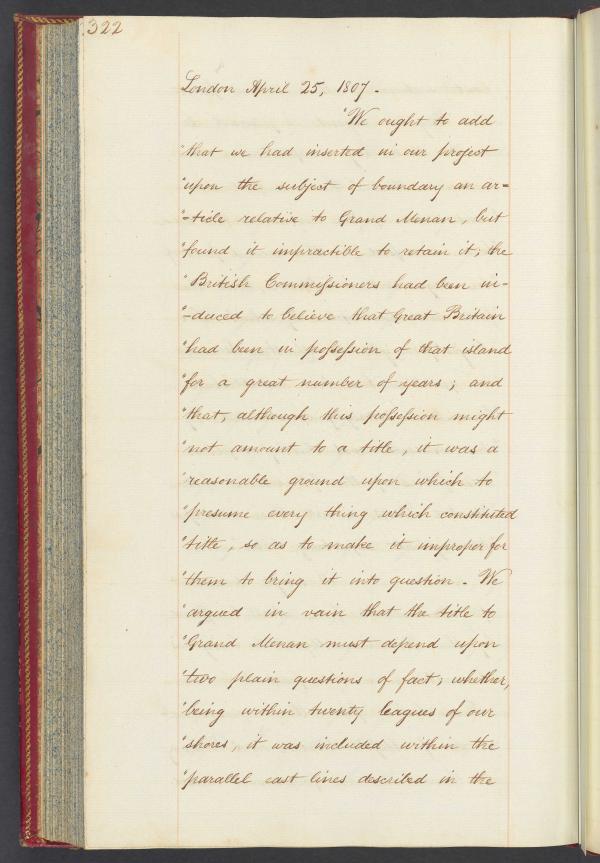 322
London April 25, 1807.
"We ought to add
"that we had inserted in our project
"upon the subject of boundary an ar=
"=ticle relative to Grand Menan, but
"found it impractible to retain it; the
"British Commissioners had been in-
"-duced to believe that Great Britain
"had been in possession of that island
"for a great number of years; and
"that, although this possession might
"not amount to a title, it was a
"reasonable ground upon which to
"presume every thing which constituted
"title, so as to make it improper for
"them to bring it into question. We
"argued in vain that the title to
"Grand Menan must depend upon
"two plain questions of fact; whether,
"being within twenty leagues of our
"shores, it was included within the
"parallel east lines described in the